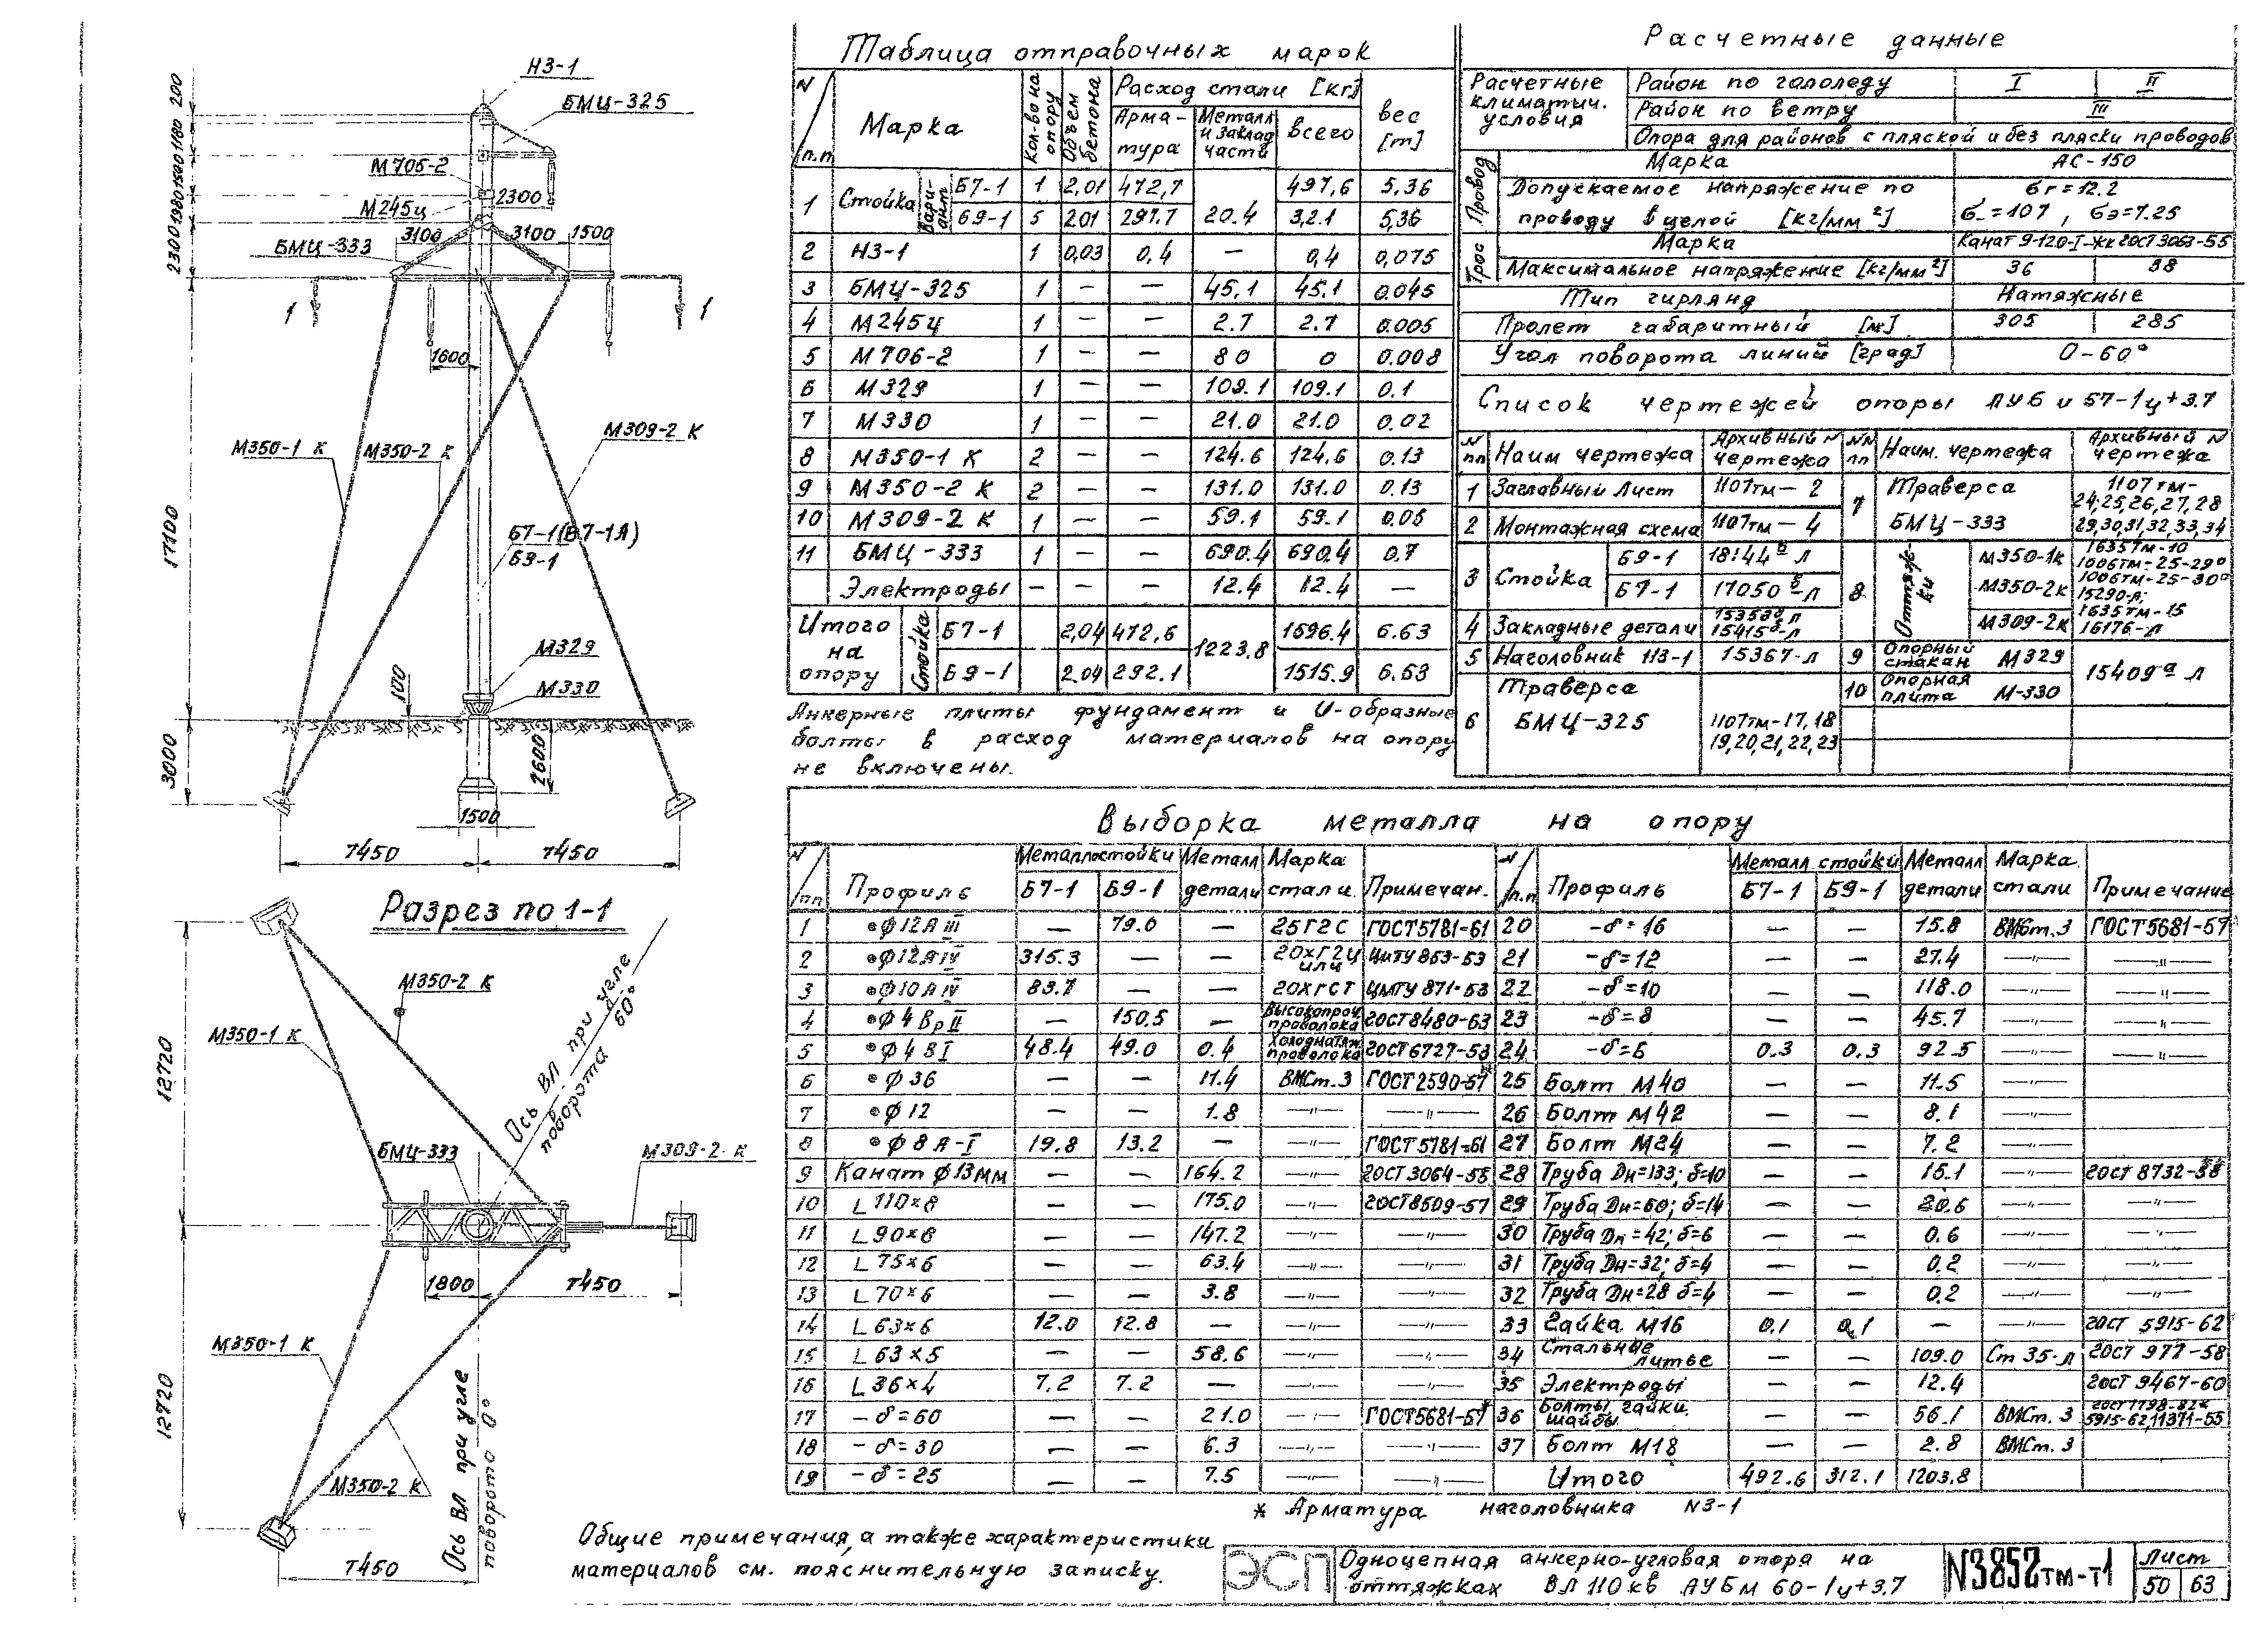 НЗ-1
БМЦ-325
М705-2
М245ц
БМЦ-333
200
1180
1500
1980
2300
17100
3000
2300
3100
3100
1500
1
1
1600
М350-1 К
М350-2 К
М309-2 К
Б7-1(Б7-1А)
Б9-1
М329
М330
100
2600
1500
7450
7450
Разрез по 1-1
М350-2 К
М350-1 К
Ось ВЛ при угле
поворота 60°
12720
БМЦ-333
М309-2 К
1800
7450
М350-1 К
12720
М350-2 К
Ось ВЛ при угле
поворота 0°
7450
Таблица отправочных марок
N п.п | Марка | Кол-во на опору | Объем бетона | Расход стали [кг] | вес [т]
Арматура | Металл и заклад части | всего
1 Стойка Вариант Б7-1 1 2,01 472,7 20.4 497,6 5,36
Б9-1 5 201 291.7 3,2.1 5,36
2 НЗ-1 1 0,03 0,4 — 0,4 0,075
3 БМЦ-325 1 — — 45,1 45.1 0.045
4 М245ц 1 — — 2.7 2.7 0.005
5 М706-2 1 — — 80 0 0.008
6 М329 1 — — 109.1 109.1 0.1
7 М330 1 — — 21.0 21.0 0.02
8 М350-1 К 2 — — 124.6 124,6 0.13
9 М350-2 К 2 — — 131.0 131.0 0.13
10 М309-2 К 1 — — 59.1 59.1 0.06
11 БМЦ-333 1 — — 690.4 690.4 0.7
Электроды — — — 12.4 12.4 —
Итого на опору Стойка Б7-1 2,04 472,6 1223.8 1696.4 6.63
Б9-1 2.04 292.1 1515.9 6.63
Анкерные плиты фундамент и U-образные
болты в расход материалов на опору
не включены.
Расчетные данные
Расчетные климатич. условия
Район по гололеду I II
Район по ветру III
Опора для районов с пляской и без пляски проводов
Провод Марка АС-150
Допускаемое напряжение по
проводу в целой [кг/мм²]
бг=12.2
б_=107, бэ=7.25
Трос Марка Канат 9-120-I-жк ГОСТ 3063-55
Максимальное напряжение [кг/мм²] 36 38
Тип гирлянд Натяжные
Пролет габаритный [м] 305 285
Угол поворота линий [град] 0-60°
Список чертежей опоры АУБ и 57-1ц+3.7
N пп | Наим чертежа | Архивный N чертежа | NN пп | Наим. чертежа | Архивный N чертежа
1 Заглавный Лист 1107тм-2
2 Монтажная схема 1107тм-4
3 Стойка Б9-1 18144б л
Б7-1 17050б-л
4 Закладные детали 15353д л
15415б-л
5 Наголовник НЗ-1 15367-л
6 Траверса БМЦ-325 1107тм-17,18
19,20,21,22,23
7 Траверса БМЦ-333 1107тм-
24,25,26,27,28
29,30,31,32,33,34
8 Оттяжки М350-1к 1635тм-10
1006тм-25-29а
М350-2к 1006тм-25-30а
15290-л;
М309-2к 1635тм-15
16176-л
9 Опорный стакан М329 15409а л
10 Опорная плита М-330
Выборка металла на опору
N пп | Профиль | Металл стойки | Металл детали | Марка стали | Примечан.
Б7-1 | Б9-1
1 ϕ12А III — 79.0 — 25Г2С ГОСТ5781-61
2 ϕ12А IV 315.3 — — 20хГ2Ц или ЦМТУ 853-53
3 ϕ10А IV 83.7 — — 20ХГСТ ЦМТУ 871-53
4 ϕ4 Вр II — 150.5 — Высокопроч. проволока ГОСТ8480-63
5 ϕ4 В I 48.4 49.0 0.4 Холоднатяж. проволока ГОСТ6727-53
6 ϕ36 — — 11.4 ВМСт.3 ГОСТ2590-57
7 ϕ12 — — 1.8 —"— —"—
8 ϕ8 А-I 19.8 13.2 — —"— ГОСТ5781-61
9 Канат ϕ13мм — — 164.2 —"— ГОСТ3064-55
10 L 110×8 — — 175.0 —"— ГОСТ8509-57
11 L 90×8 — — 147.2 —"— —"—
12 L 75×6 — — 63.4 —"— —"—
13 L 70×6 — — 3.8 —"— —"—
14 L 63×6 12.0 12.8 — —"— —"—
15 L 63×5 — — 58.6 —"— —"—
16 L 36×4 7.2 7.2 — —"— —"—
17 -δ=60 — — 21.0 —"— ГОСТ5681-57
18 -δ=30 — — 6.3 —"— —"—
19 -δ=25 — — 7.5 —"— —"—
N п.п | Профиль | Металл стойки | Металл детали | Марка стали | Примечание
Б7-1 | Б9-1
20 -δ=16 — — 15.8 ВМСт.3 ГОСТ5681-57
21 -δ=12 — — 27.4 —"— —"—
22 -δ=10 — — 118.0 —"— —"—
23 -δ=8 — — 45.7 —"— —"—
24 -δ=6 0.3 0.3 92.5 —"— —"—
25 Болт М40 — — 11.5 —"—
26 Болт М42 — — 8.1 —"—
27 Болт М24 — — 7.2 —"—
28 Труба Dн=133; δ=10 — — 15.1 —"— ГОСТ 8732-58
29 Труба Dн=60; δ=14 — — 20.6 —"— —"—
30 Труба Dн=42; δ=6 — — 0.6 —"— —"—
31 Труба Dн=32; δ=4 — — 0.2 —"— —"—
32 Труба Dн=28 δ=4 — — 0.2 —"— —"—
33 Гайка М16 0.1 0.1 — —"— ГОСТ 5915-62
34 Стальные литье — — 109.0 Ст 35-л ГОСТ 977-58
35 Электроды — — 12.4 ГОСТ 9467-60
36 Болты, гайки, шайбы — — 56.1 ВМСт.3 5915-62,11371-55
37 Болт М18 — — 2.8 ВМСт.3
Итого 492.6 312.1 1203.8
* Арматура наголовника НЗ-1
Общие примечания, а также характеристики
материалов см. пояснительную записку.
ЭСП
Одноцепная анкерно-угловая опора на
оттяжках ВЛ 110кв АУБм 60-1ц+3.7
N3852тм-т1
Лист
50 63